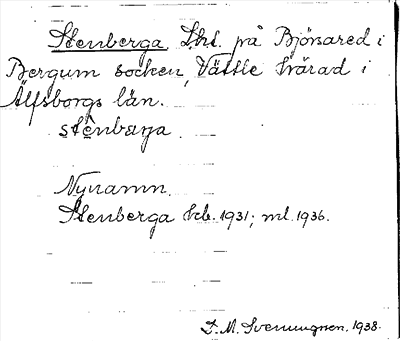 Stenberga Lht. på Björsared i
Bergum socken, Vättle härad i
Älfsborgs län.
stènbærja
Nynamn.
Stenberga kb. 1931; ml. 1936.
F. M. Svenungsson, 1938.